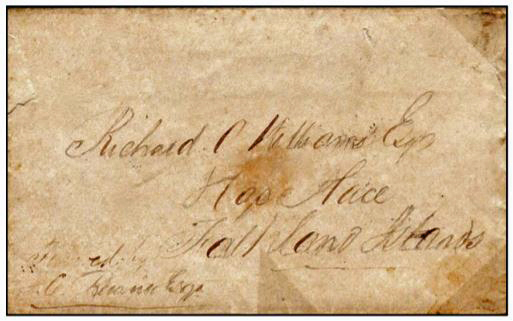 Richard C Williams Esq
Hope Place
Falkland Islands
Favored by
Esqr